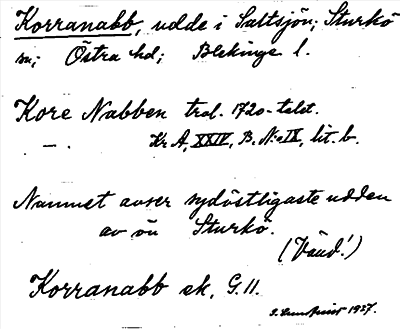 Korranabb, udde i Saltsjön; Sturkö
sn; Östra hd; Blekinge l.
Kore Nabben trol. 1720-talet.
Kr A, XXIV, B. N:o IX, lit. b.
Namnet avser sydöstligaste udden
av ön Sturkö.
(Vänd!)
Korranabb ek. G. 11.
1927.